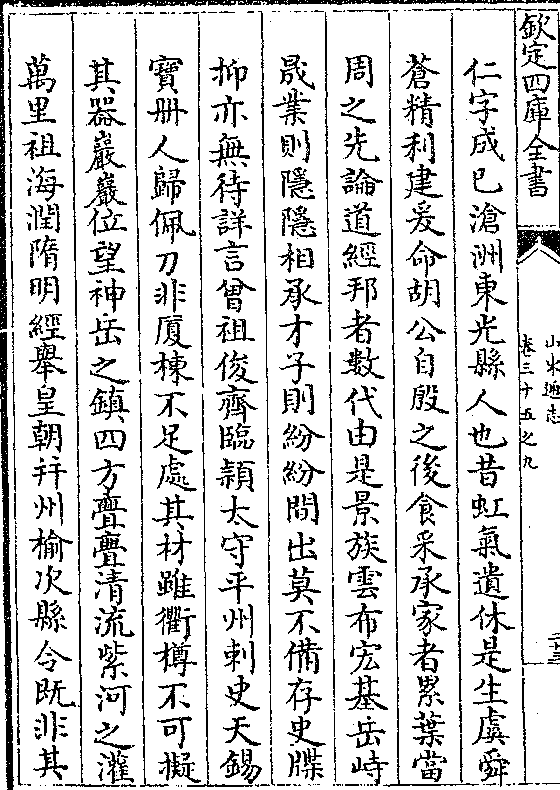 欽定四庫全書
山東通志
卷三十五之九
仁字成已滄洲東光縣人也昔虹氣遺休是生虞舜
蒼精利建爰命胡公自殷之後食采承家者累葉當
周之先論道經邦者數代由是景族雲布宏基岳峙
晟業則隱隱相承才子則紛紛間出莫不備存史牒
抑亦無待詳言曾祖俊齊臨潁太守平州刺史天錫
寶册人歸佩刀非厦棟不足處其材雖衢樽不可擬
其器巖巖位望神岳之鎮四方亹亹清流紫河之灌
萬里祖海潤隋明經舉皇朝并州榆次縣令既非其